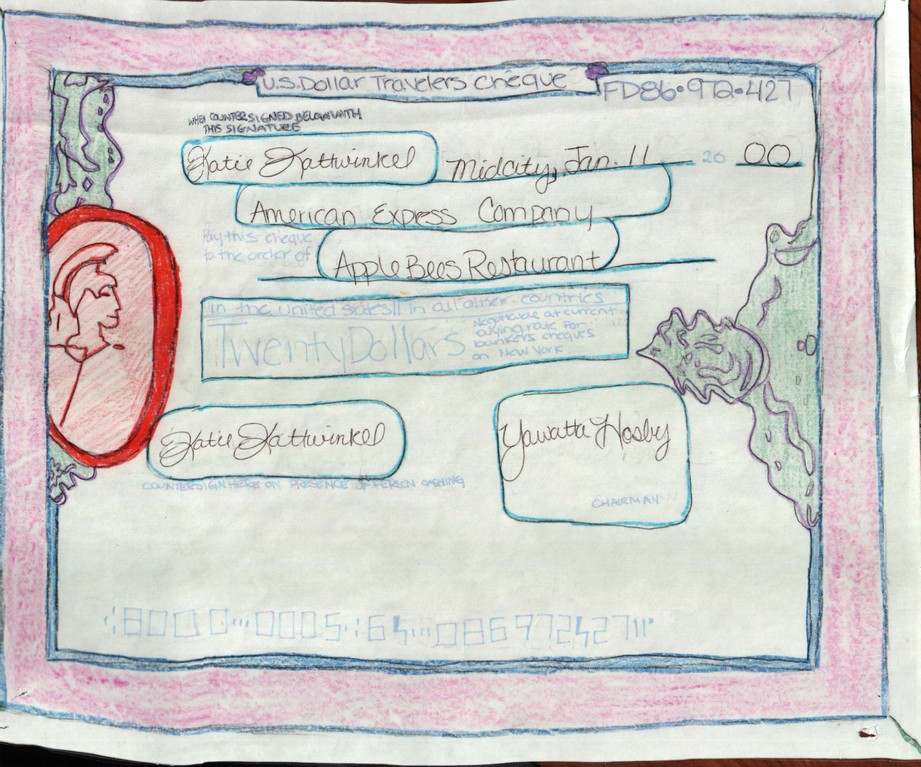 U.S. Dollar Travelers Cheque
FD86•972•427
WHEN COUNTERSIGNED BELOW WITH
THIS SIGNATURE
Katie Kattwinkel
Midcity, Jan. 11 20 00
American Express Company
Pay this cheque
to the order of
AppleBees Restaurant
in the united states|| in all other countries
Twenty Dollars
Negotiable at current
buying rate for
bankers cheques
on New York
Katie Kattwinkel
Yawatta Hosby
COUNTERSIGN HERE ON PRESENCE OF PERSON CASHING
CHAIRMAN